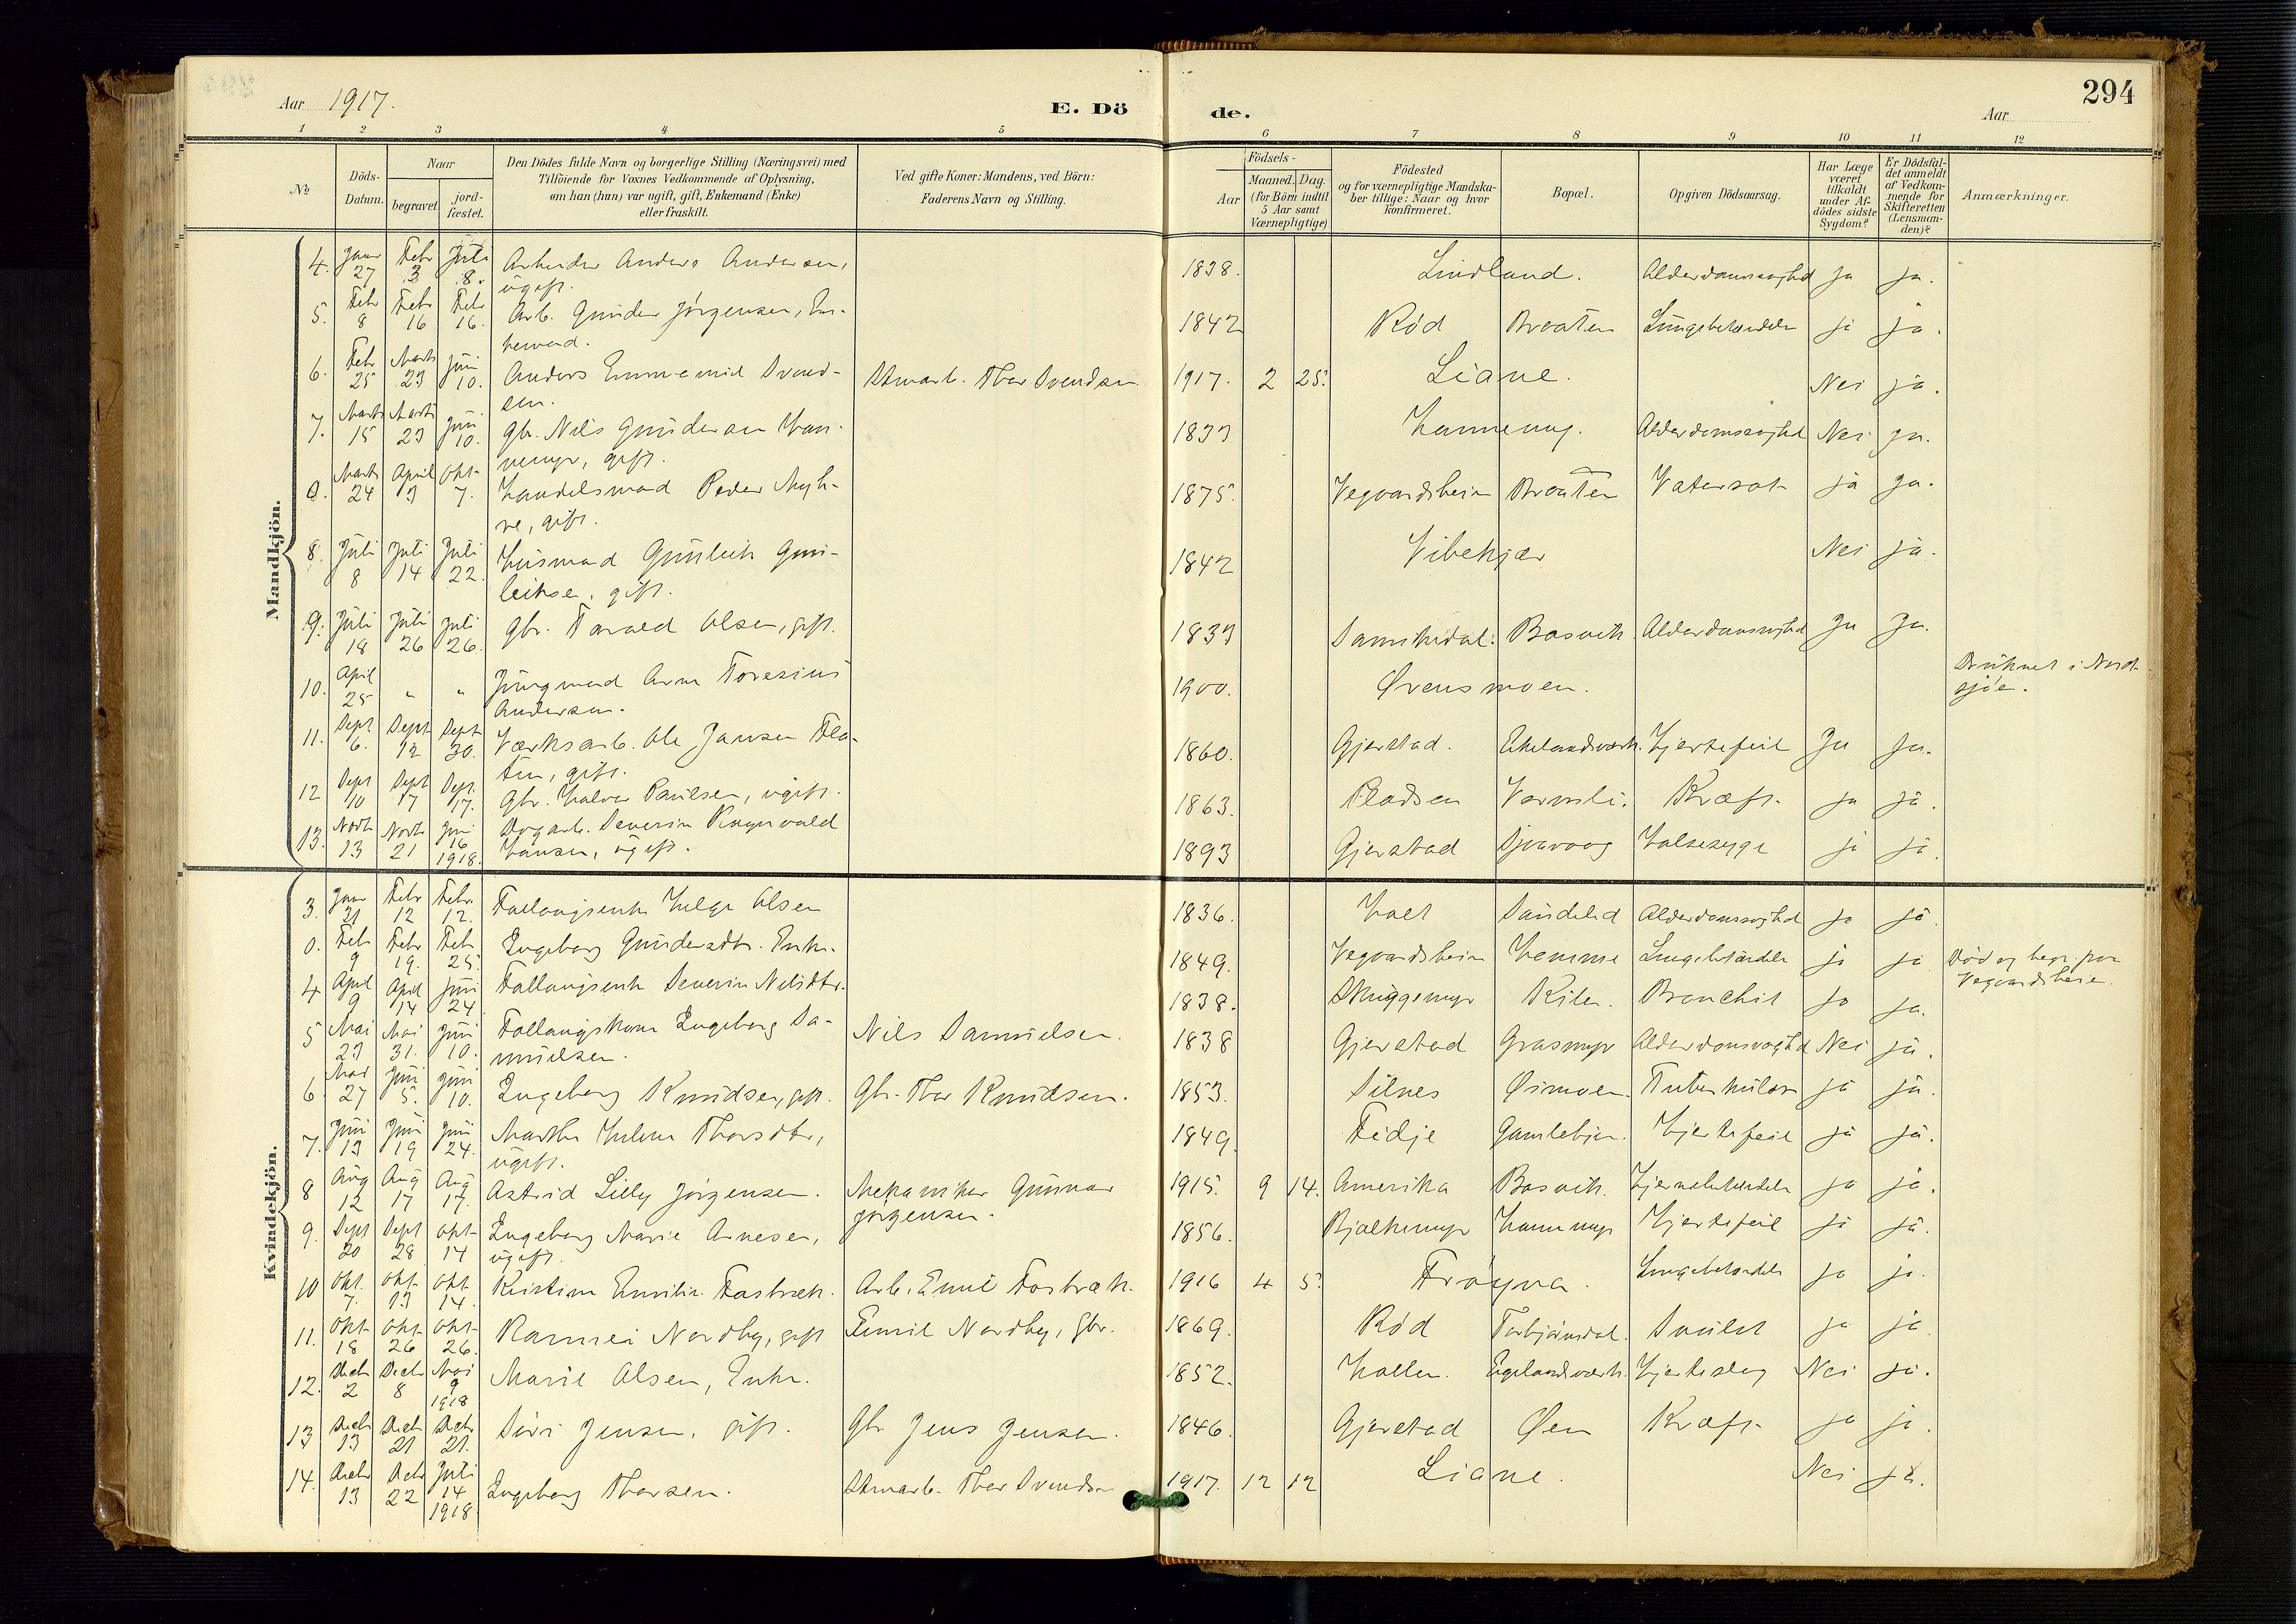 294
Aar 1917.
E. Dö
de.
Aar
1 2 3 4 5 6 7 8 9 10 11 12
№
Döds-Datum.
Naar
begravet.
jord-fæstet.
Den Dödes fulde Navn og borgerlige Stilling (Næringsvei) med
Tilföiende for Voxnes Vedkommende af Oplysning,
om han (hun) var ugift, gift, Enkemand (Enke)
eller fraskilt.
Ved gifte Koner: Mandens, ved Börn:
Faderens Navn og Stilling.
Födsels-
Aar
Maaned. Dag.
(for Börn indtil
5 Aar samt
Værnepligtige)
Födested
og for værnepligtige Mandska-
ber tillige: Naar og hvor
konfirmeret.
Bopæl.
Opgiven Dödsaarsag.
Har Læge
været
tilkaldt
under Af-
dödes sidste
Sygdom?
Er Dödsfal-
det anmeldt
af Vedkom-
mende for
Skifteretten
(Lensman-
den)?
Anmærkninger.
Mandkjön.
4. Janr 27 Febr 3 Juli 8. Arbeider Anders Andersen, ugift. 1838. Lindland. Alderdomssvaghed ja ja.
5. Febr 8 Febr 16 Febr 16. Arb. Gunder Jörgensen, En-
kemand. 1842 Röd Braaten Lungebetændelse ja ja.
6. Febr 25 Marts 23 Juni 10. Anders Emmemil Svend-
sen. Stuarb. Thor Svendsen 1917. 2 25. Liane. Nei ja.
7. Marts 15 Marts 23 Juni 10. Gbr. Nils Gundersen Han-
nemyr, gift. 1833 Hannemyr. Alderdomssvaghed Nei ja.
0. Marts 24 April 3 Okt 7. Handelsmand Peder Myh-
re, gift. 1875. Vegaardsheien Braaten Vatersot ja ja.
8. Juli 8 Juli 14 Juli 22. Husmand Gunleik Gun-
leiksen, gift. 1842 Vibekjær Nei ja.
9. Juli 18 Juli 26 Juli 26. Gbr. Tarald Olsen, gift. 1837 Sannikedal. Bosvik. Alderdomssvaghed Ja Ja.
10. April 25 " " Jungmand Arne Toresius
Andersen. 1900. Övensmoen. Druknet i Nord-
sjöe.
11. Sept 6. Sept 12 Sept 30. Værksarb. Ole Jansen Fla-
ten, gift. 1860. Gjerstad. Ekelandsværk. Hjertefeil Ja ja.
12 Sept 10 Sept 17 Sept 17. Gbr. Halvor Paulsen, ugift. 1863. Pladsen Varmli. Kræft. ja ja.
13. Novbr 13 Novbr 21 Juni 16 1918. Dagarb. Severin Ragnvald
Hansen, ugift. 1893 Gjerstad Sjavaag Halsesyge ja ja.
Kvindekjön.
3. Janr 31 Febr 12 Febr. 12. Fattigenke Helge Olsen 1836. Holt Söndeled Alderdomssvaghed ja ja.
0. Febr 9 Febr 19. Febr 25. Ingeborg Gundersdtr. Enke. 1849. Vegaardsheien Hemme Lungebetændelse ja ja Död og begr. paa
Vegaardsheien.
4 April 9 April 14 Juni 24 Severin Nilsdtr. 1838. Skuggemyr Kilen. Bronchit ja ja.
5 Mai 23 Mai 31. Juni 10. Ingeborg Sa-
muelsen. Nils Samuelsen. 1838 Gjerstad Grasmyr Alderdomsvaghed Nei ja.
6. Mai 27 Juni 5. Juni 10. Ingeborg Knudsen, gift. Gbr. Thor Knudsen. 1853. Silnes Öimoen. Tuberkulose ja ja.
7. Juni 13 Juni 19 Juni 24. Marthe Helene Thorsdtr,
ugift. 1849. Fidje Gamlebjer. Hjertefeil ja ja.
8 Aug 12 Aug 17 Aug 17. Astrid Lilly Jörgensen. Mekaniker Gunnar
Jörgensen. 1915. 9 14. Amerika Bosvik. Hjernebetændelse ja ja.
9. Sept 20 Sept 28 Okt 14 Ingeborg Marie Arnesen,
ugift. 1856. Bjalkemyr Hannemyr Hjertefeil ja ja.
10 Okt. 7. Okt. 13 Okt 14. Kristine Emilie Fosbæk. Arb. Emil Fosbæk. 1916 4 5. Fröyna. Lungebetændelse ja ja.
11. Okt. 18 Okt. 26 Okt. 26. Ramnei Nordby, gift Emil Nordby, Gbr. 1869. Röd Torbjörnsdal. Svulst ja ja
12. Decbr 2 Decbr 8 Mai 9 1918 Marie Olsen, Enke. 1852. Hallen. Egelandsværk. Hjerteslag Nei ja.
13 Decbr 13 Decbr 21 Decbr 21. Siri Jensen, gift. Gbr. Jens Jensen. 1846. Gjerstad Öen Kræft. ja ja.
14. Decbr 13 Decbr 22 Juli 14 1918 Ingeborg Thorsen. Stuarb. Thor Svendsen 1917. 12 12 Liane. Nei ja.